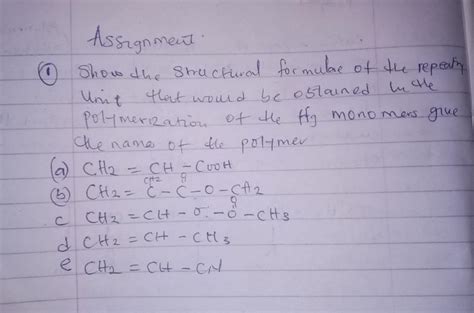 Assignment.
① Show the structural formulae of the repeating
Unit that would be obtained in the
polymerization of the ffg monomers give
the name of the polymer
(a) CH2 = CH - COOH
CH2 O
(b) CH2 = C - C - O - CH2
O
c CH2 = CH - O - O - CH3
d CH2 = CH - CH3
e CH2 = CH - CN